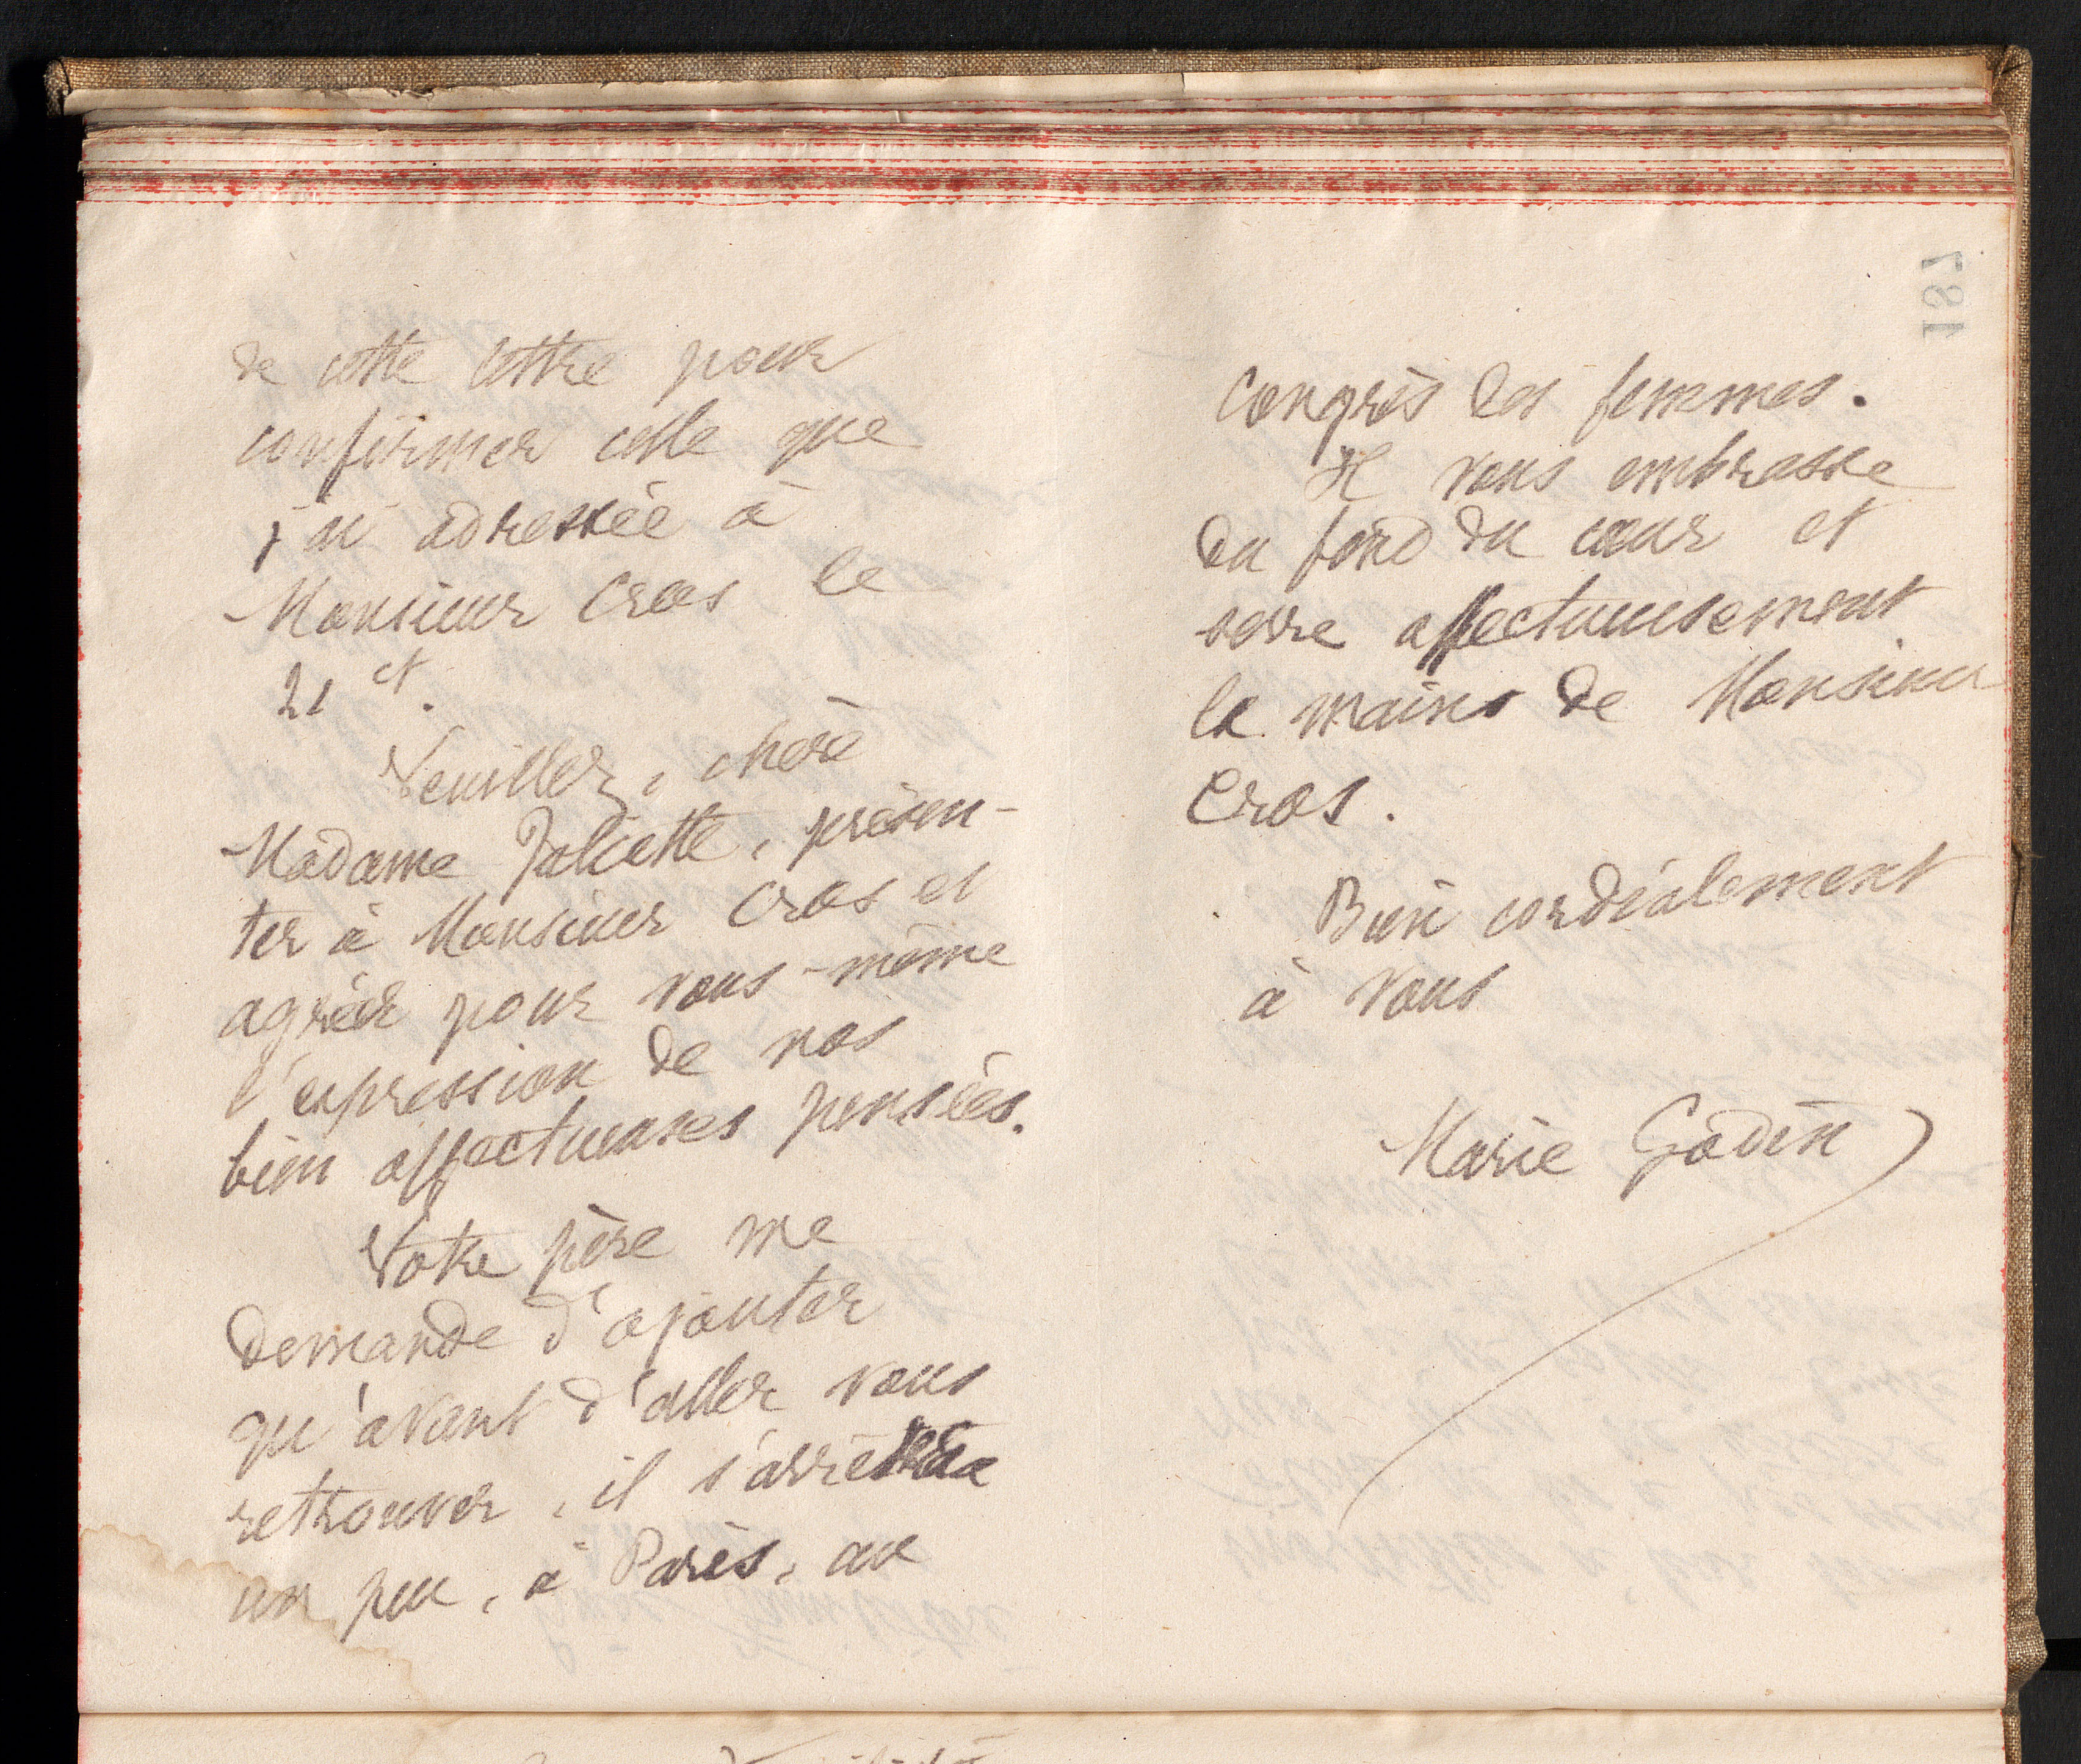 de cette lettre pour
confirmer celle que
j'ai adressée à
Monsieur Cros le
21 ct.
Veuillez, chère
Madame Juliette, présen-
ter à Monsieur Cros et
agréer pour vous-même
l'expression de nos
bien affectueuses pensées.
Votre père me
demande d'ajouter
qu'avant d'aller vous
retrouver, il s'arrêtera
un peu, à Paris, au
187
Congrès des femmes.
Il vous embrasse
du fond du cœur et
serre affectueusement
la mains de Monsieur
Cros.
Bien cordialement
à vous
Marie Godin